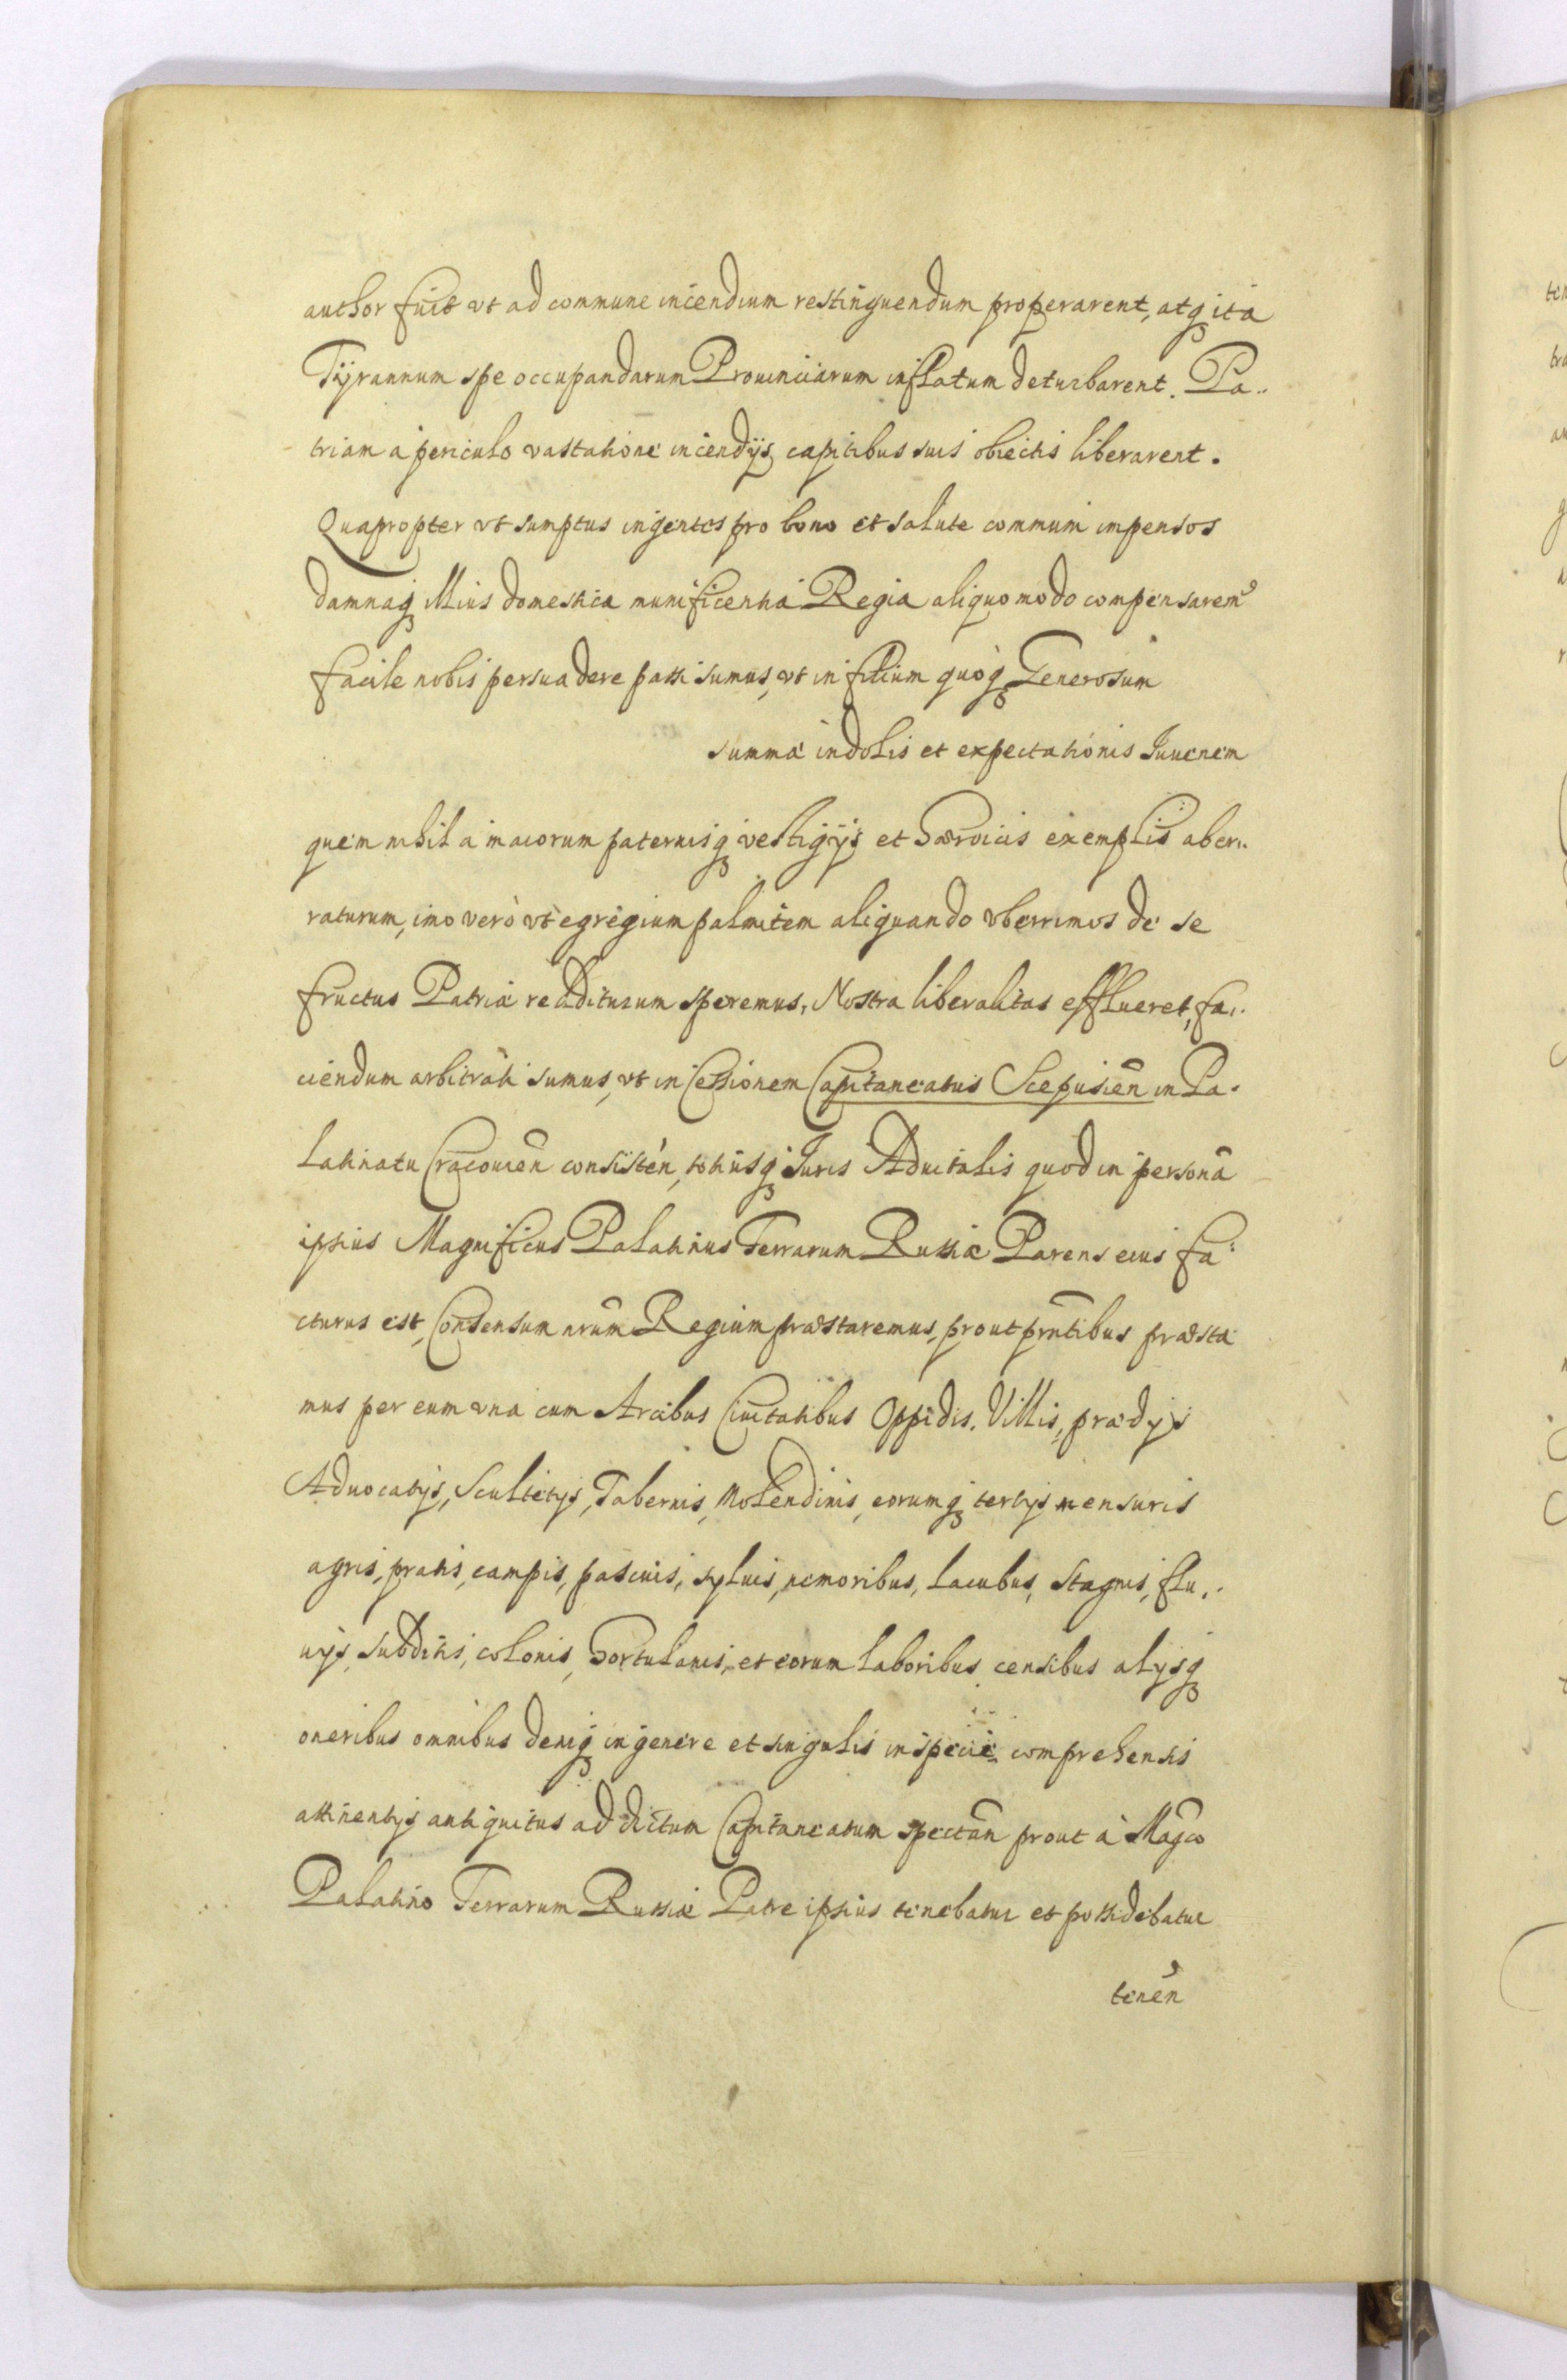 author fuit vt ad commune incendium restinguendum properarent, atq ita
Tyrannum spe occupandarum Prouinciarum inflatum deturbarent. Pa..
triam a periculo vastatione incendijs capitibus suis obiectis liberarent.
Quapropter vt sumptus ingentes pro bono et salute communi impensos
damnaq illius domestica munificentia Regia aliquo modo compensarem9
facile nobis persuadere passi sumus, vt in filium quoq Generosum
summæ indolis et expectationis Iuuenem
quem nihil a maiorum paternisq vestigijs et Hæroicis exemplis aber..
raturum, imo verò vt egregium palmitem aliquando vberrimos de se
fructus Patriæ redditurum speremus, Nostra liberalitas efflueret, fa..
ciendum arbitrati sumus, vt in Cessionem Capitaneatus Scepusien̄ in Pa.
latinatu Cracouien̄ consisten̄, totiusq Iuris Aduitalis quod in personā
ipsius Magnificus Palatinus Terrarum Russiæ Parens eius fa:
cturus est, Consensum nrum̄ Regium præstaremus, prout prn̄tibus præsta
mus per eum vna cum Arcibus Ciuitatibus Oppidis. Villis, prædijs
Aduocatijs, Scultetijs, Tabernis, Molendinis, eorumq tertijs mensuris
agris, pratis, campis, pascuis, syluis, nemoribus, lacubus, stagnis, flu..
uijs, subditis, colonis, Hortulanis, et eorum laboribus censibus alijsq
oneribus omnibus deniq in genere et singulis in specie comprehensis
attinentijs antiquitus ad dictum Capitaneatum spectan̄ prout à Magco
Palatino Terrarum Russiæ Patre ipsius tenebatur et possidebatur
tenen̄